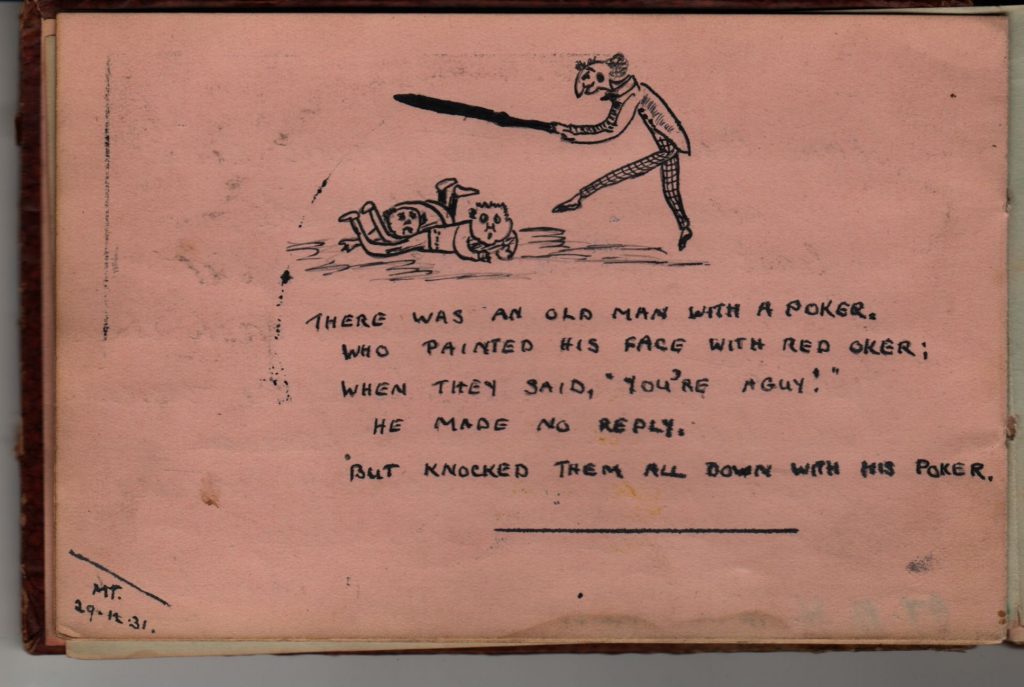 THERE WAS AN OLD MAN WITH A POKER.
WHO PAINTED HIS FACE WITH RED OKER;
WHEN THEY SAID, "YOU'RE A GUY!"
HE MADE NO REPLY.
BUT KNOCKED THEM ALL DOWN WITH HIS POKER.
MT.
29-12-31.